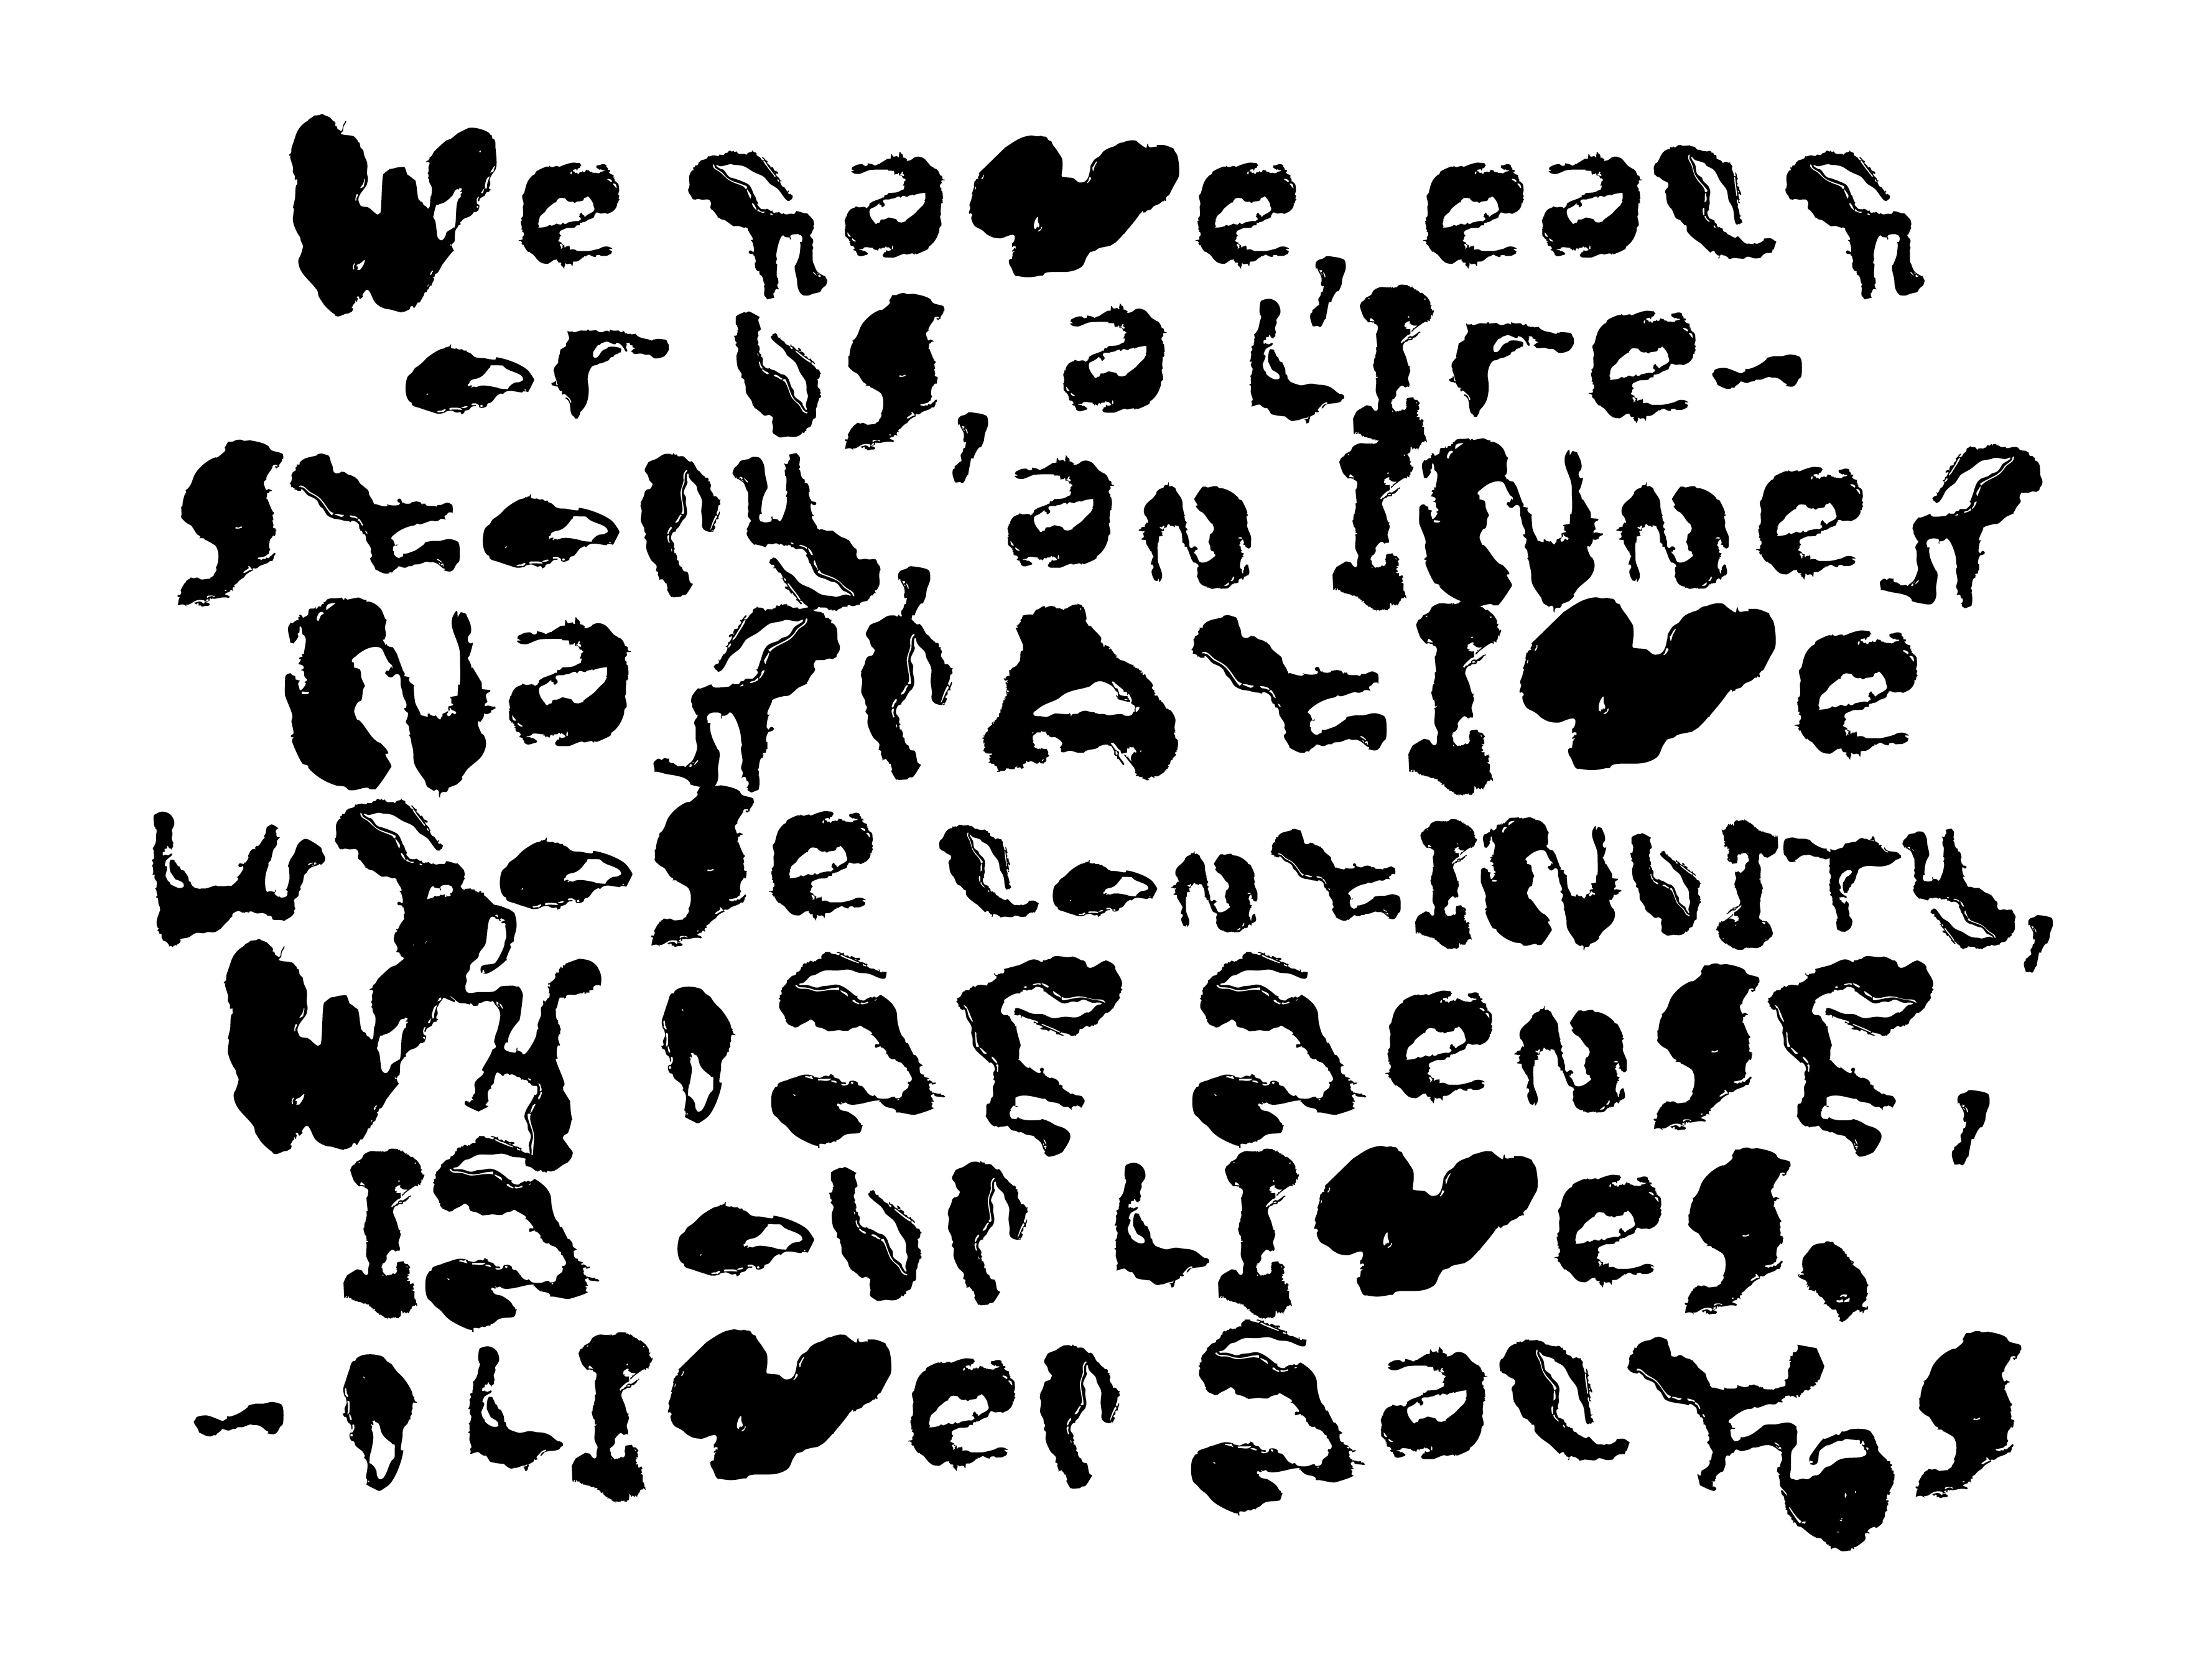 We have each
of us, a life-
story, an inner
narrative
whose continuity,
whose sense,
is our lives.
-Oliver Sacks